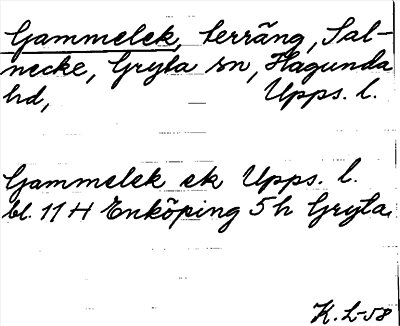 Gammelek, terräng, Sal-
necke, Gryta sn, Hagunda
hd, Upps. l.
Gammelek ek Upps. l.
bl. 11 H Enköping 5 h Gryta.
K. L-58